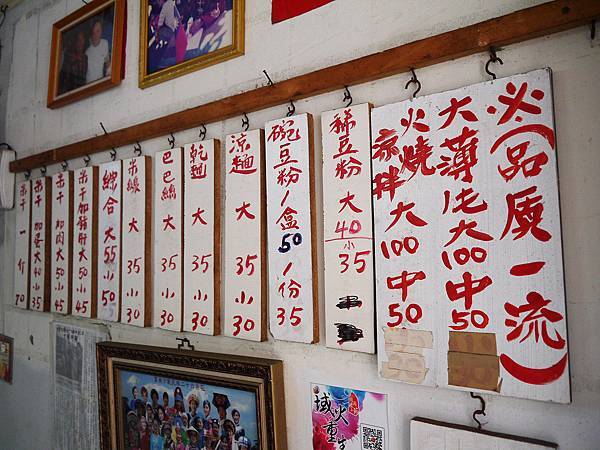 必(品质一流)
大薄片大100中50
火燒
涼拌大100中50
稀豆粉大40小35
碗豆粉1盒50 1份35
涼麵大35小30
乾麵大35小30
巴巴絲大35小30
米線大35小30
綜合大55小50
米干加豬肝大50小45
米干加肉大50小45
米干加蛋大40小35
米干一斤70
域火重生